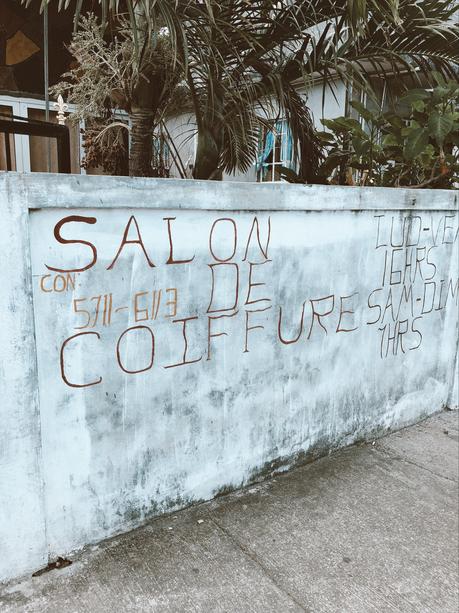 SALON
CON:
5711-6113
DE
COIFFURE
LUD-VEN
16HRS
SAM-DIM
1HRS